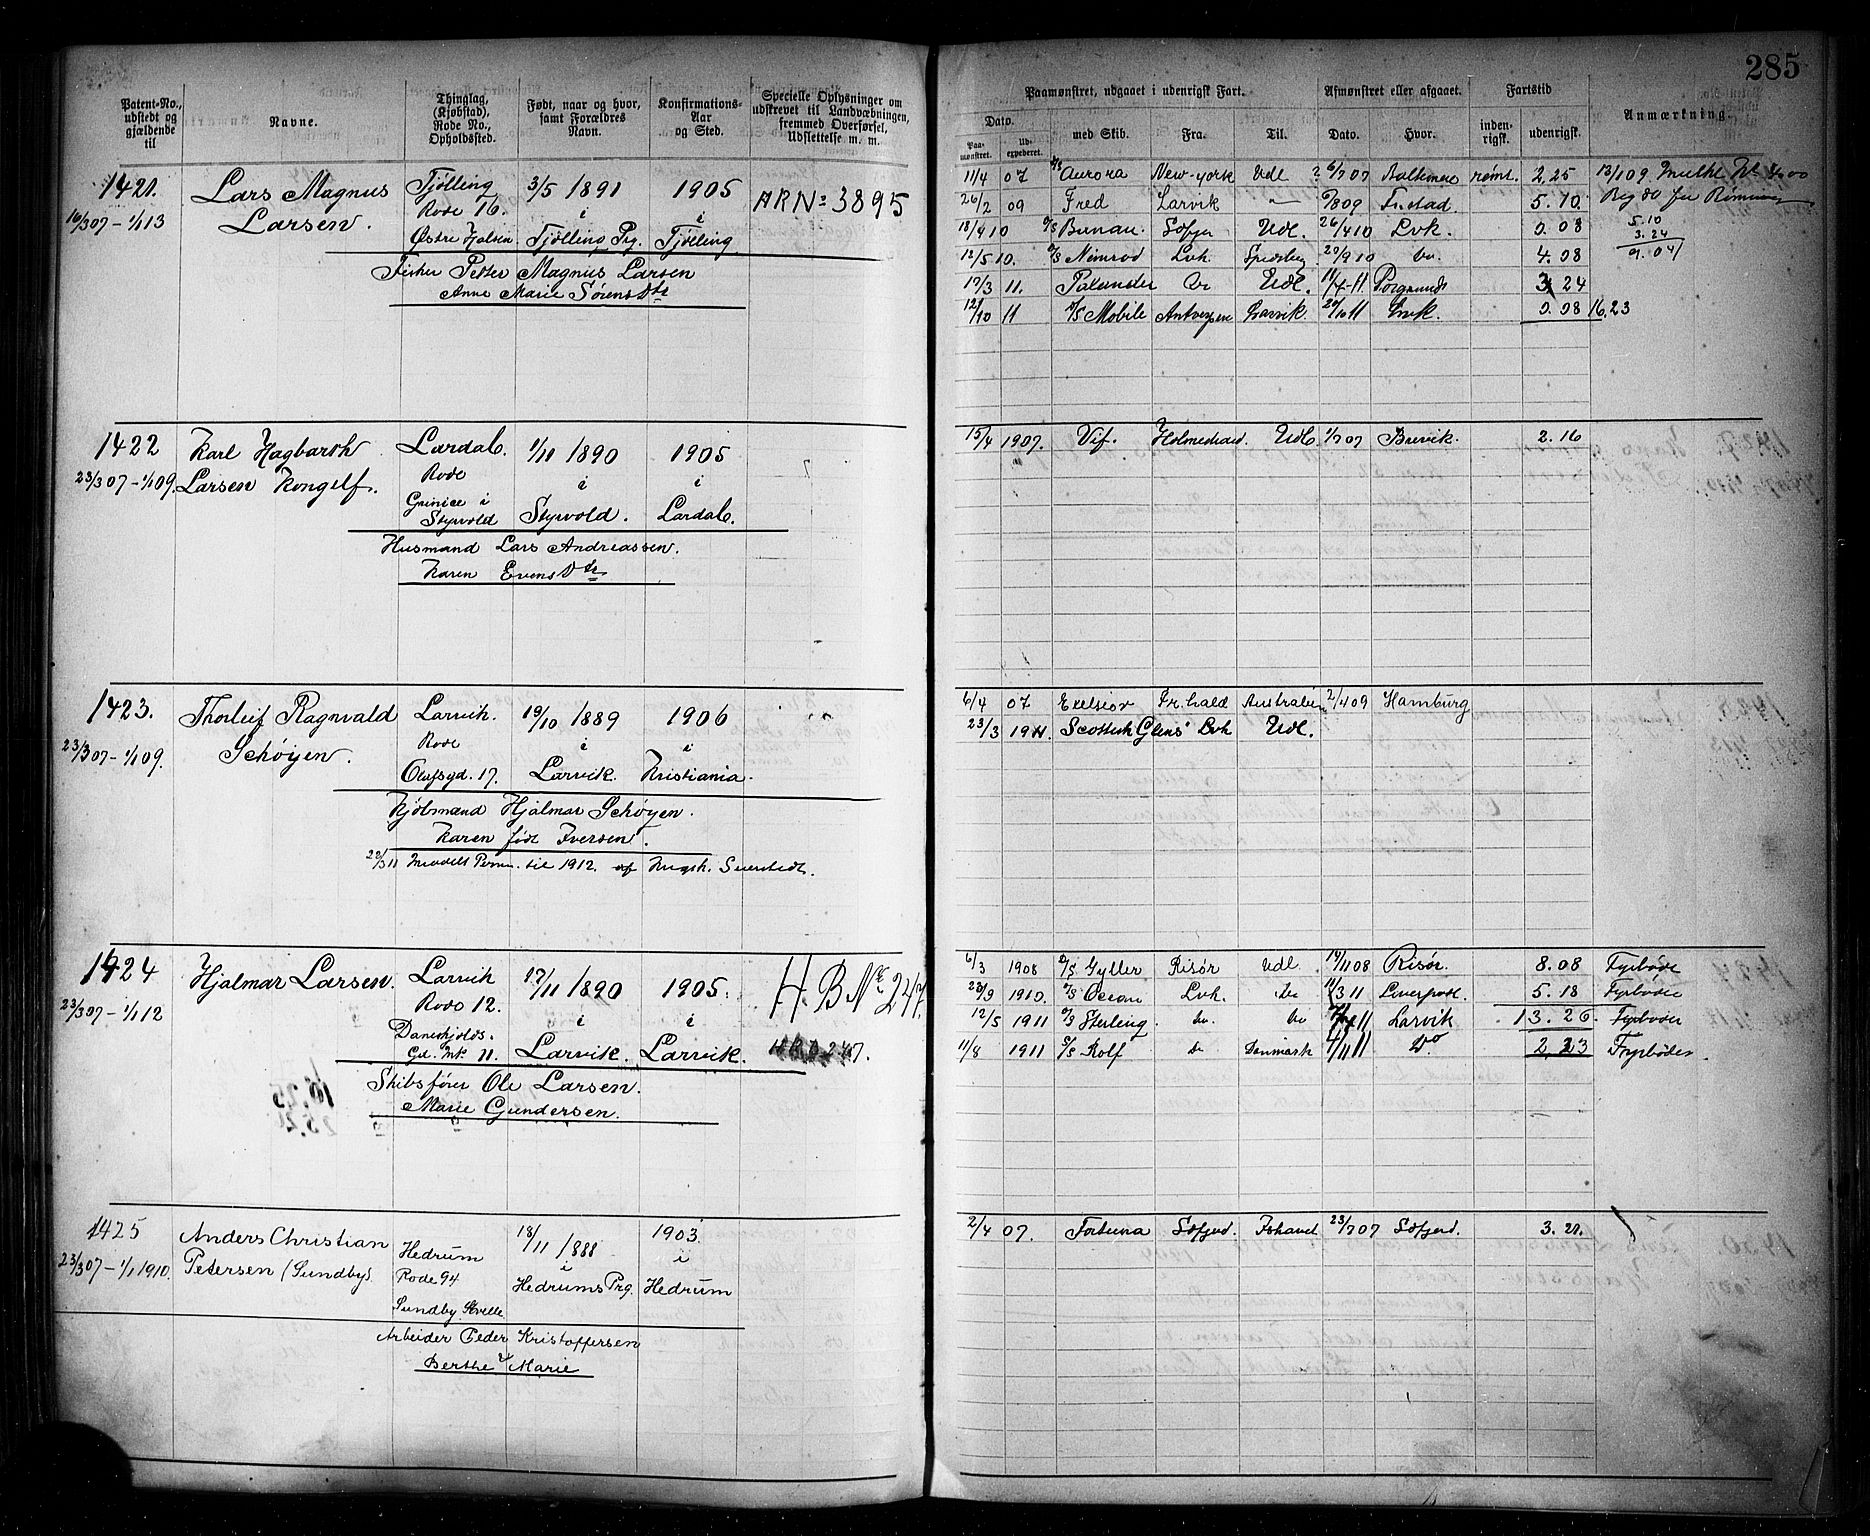 285
Patent-No., udstedt og gjældende til
Navne.
Thinglag, (Kjøbstad), Rode No., Opholdssted.
Født, naar og hvor, samt Forældres Navn.
Konfirmations-Aar og Sted.
Specielle Oplysninger om udskrevet til Landvæbningen, fremmed Overførsel, Udslettelse m. m.
Paamønstret, udgaaet i udenrigsk Fart.
Afmønstret eller afgaaet.
Fartstid
Anmærkning.
Dato.
Paa-mønstret.
Ud-expederet.
med Skib.
Fra.
Til.
Dato.
Hvor.
inden-rigsk.
udenrigsk.
1421.
16/3 07 – 1/1 13
Lars Magnus
Larsen.
Tjølling
Rode 76.
Østre Halsen
3/5 1891
i
Tjølling Prg.
1905
i
Tjølling
ARNo 3895
Fisker Petter Magnus Larsen
Anne Marie Sørensdtr
11/4 07 Aurora New-york Udl ? 6/7 07 rømt. 2.25
26/2 09 Fred Larvik 09 5.10
18/4 10 Udl. 26/4 10 Lvk. 0.08
12/5 10. Nimrod Lvk 20/9 10 do. 4.08
17/3 11. Do Udl. 11 Porsgrund 3 24
12/10 11 Mobile Antverpen Larvik. 11 Lvk. 0.08 16.23
5.10
3.24
9.04
1422
23/3 07 – 1/1 09.
Karl Hagbarth
Larsen Kongelf.
Lardal.
Rode
i
Styrvold
1/11 1890
i
Styrvold.
1905
i
Lardal.
Husmand Lars Andreassen.
Karen Evensdtr
15/4 1907. Vif. Holmestrand. Udl. 1/7 07 Brevik. 2.16
1423.
23/3 07 – 1/1 09.
Thorleif Ragnvald
Schøyen.
Larvik.
Rode
Olafsgd. 17.
19/10 1889
i
Larvik.
1906
i
Kristiania.
Kjøbmand Hjalmar Schøyen.
Karen født Iversen.
til 1912. af
6/4 07 Exelsior Fr.hald Australien 2/4 09 Hamburg
23/3 1911. Scottish Glens Lvk Udl.
1424
23/3 07 – 1/1 12
Hjalmar Larsen.
Larvik
Rode 12.
Daneskjolds.
Gd. No 11.
17/11 1890
i
Larvik.
1905.
i
Larvik.
H.B No 247.
Skibsfører Ole Larsen.
Marie Gundersen.
6/3 1908 Gyller Risør Udl. 19/11 08 Risør. 8.08 Fyrbøder
1910. Ocean Lvk. Do 3 11 Liverpool. 5.18 Fyrbøder
12/5 1911 Sterling do. do 11 Larvik 13.26. Fyrbøder
11/8 1911 Rolf Do Danmark 11 Do 2.23 Fyrbøder
1425
23/3 07 – 1/1 1910.
Anders Christian
Petersen (Sundby)
Hedrum
Rode 94
Sundby Kvelle
18/11 1888
i
Hedrums Prg.
1903.
i
Hedrum
Arbeider Peder Kristoffersen
Berthe Marie
2/4 07. Fortuna Ishavet 23/7 07 3.21.